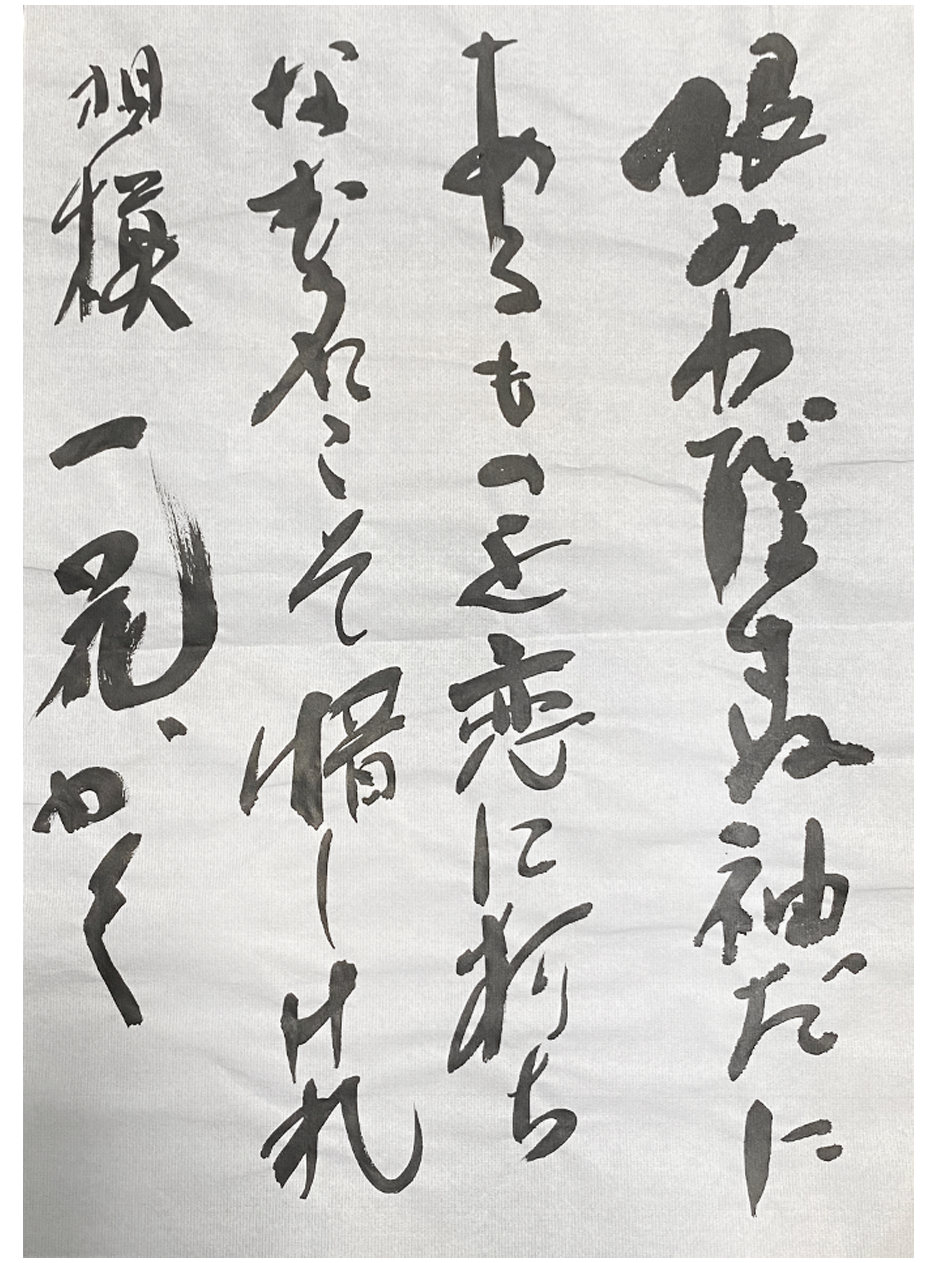 恨みわびほさぬ袖だに
あるものを恋に朽ち
なむ名こそ惜しけれ
相模 一 かく